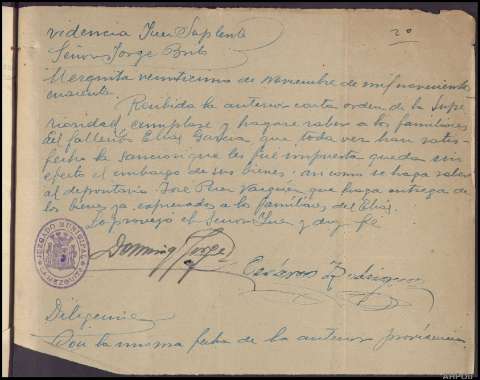 videncia Juez Suplente
Señor Jorge Brito
20
veintiuno de noviembre de mil novecientos
cuarenta.
Recibida la anterior carta orden de la Supe
rioridad, cumplase y hagase saber a los familiares
del fallecido Elias Garcia que toda vez han satis-
fecho la sancion que le fué impuesta queda sin
efecto el embargo de sus bienes; asi como se haga saber
al depositario José Ruiz que haga entrega de
los bienes ya expresados a los familiares del Elias.
Lo proveyó el Señor Juez y doy fé
JUZGADO MUNICIPAL
Domingo Jorge
Rodriguez
Diligencia
Con la misma fecha de la anterior providencia